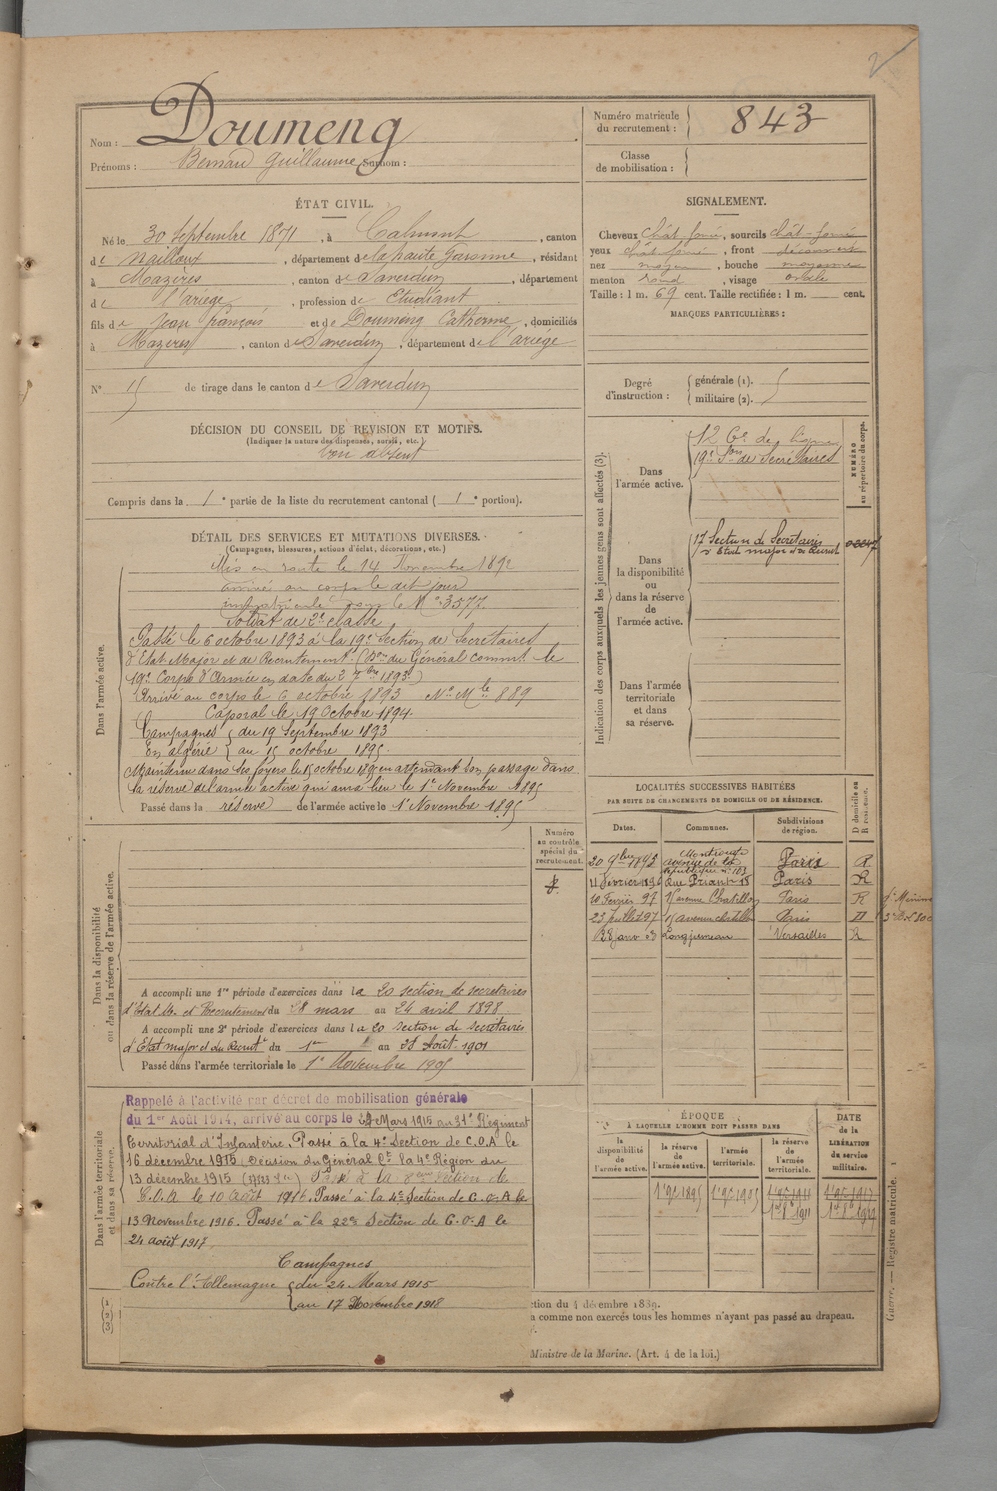 Nom : Doumeng
Prénoms : Bernard Guillaume Surnom :
Numéro matricule du recrutement : 843
Classe de mobilisation :
ÉTAT CIVIL.
Né le 30 Septembre 1871, à Calmont, canton
de Nailloux, département de la haute Garonne, résidant
à Mazères, canton de Saverdun, département
de l'ariège, profession de Etudiant
fils de Jean françois et de Doumeng Catherine, domiciliés
à Mazères, canton de Saverdun, département de l'ariège
N° 15 de tirage dans le canton de Saverdun
SIGNALEMENT.
Cheveux chât foncé, sourcils chât-foncé
yeux chât foncé, front découvert
nez moyen, bouche moyenne
menton rond, visage ovale
Taille : 1 m. 69 cent. Taille rectifiée : 1 m. cent.
MARQUES PARTICULIÈRES :
Degré d'instruction : générale (1).
militaire (2).
DÉCISION DU CONSEIL DE REVISION ET MOTIFS.
(Indiquer la nature des dispenses, sursis, etc.)
bon absent
Compris dans la 1e partie de la liste du recrutement cantonal ( 1e portion).
DÉTAIL DES SERVICES ET MUTATIONS DIVERSES.
(Campagnes, blessures, actions d'éclat, décorations, etc.)
Dans l'armée active.
Mis en route le 14 Novembre 1892
arrivé au corps le dit jour
immatriculé sous le N° 3577.
Soldat de 2e classe
Passé le 6 octobre 1893 à la 19e Section de Secrétaires
d'Etat Major et de Recrutement. (Don du Général commt le
19e Corps d'Armée en date du 2 7bre 1893.)
Arrivé au corps le 6 octobre 1893 N° Mle 889
Caporal le 19 Octobre 1894.
Campagnes du 19 Septembre 1893
En algérie au 15 octobre 1895.
Maintenu dans ses foyers le 15 octobre 1895 en attendant son passage dans
la réserve de l'armée active qui aura lieu le 1er Novembre 1895
Passé dans la réserve de l'armée active le 1er Novembre 1895
Indication des corps auxquels les jeunes gens sont affectés (3).
NUMÉRO au répertoire du corps.
Dans l'armée active.
19e Son de Secrétaires
Dans la disponibilité ou dans la réserve de l'armée active.
17 Section de Secrétaires
Dans l'armée territoriale et dans sa réserve.
LOCALITÉS SUCCESSIVES HABITÉES
PAR SUITE DE CHANGEMENTS DE DOMICILE OU DE RÉSIDENCE.
Dates. Communes. Subdivisions de région. D domicile ou R résidence.
20 9bre 1895 Montrouge avenue de la République n° 103 Paris R
11 février 1896 Rue Friant 18 Paris R
10 Février 97 15 avenue Chatillon Paris R
23 juillet 97 15 avenue chatillon Paris D
22 janv 03 Longjumeau Versailles R
Numéro au contrôle spécial du recrutement.
Dans la disponibilité ou dans la réserve de l'armée active.
A accompli une 1re période d'exercices dans la 20 section de secretaires
d'Etat M. et Recrutement du 28 mars au 24 avril 1898
A accompli une 2e période d'exercices dans la 20 section de secrétaires
d'Etat major et du Recrutt du 1er au 28 Août 1901
Passé dans l'armée territoriale le 1er Novembre 1905
Dans l'armée territoriale et dans sa réserve.
Rappelé à l'activité par décret de mobilisation générale
du 1er Août 1914, arrivé au corps le 24 Mars 1915 au 31e Régiment
Territorial d'Infanterie. Passé à la 4e Section de C.O.A le
16 décembre 1915 (Décision du Général Ct la 4e Région du
13 décembre 1915 Passé à la 8eme Section de
C.O.A le 10 Août 1916. Passé à la 4e Section de C.O.A le
13 Novembre 1916. Passé à la 22e Section de C.O.A le
24 août 1917.
Campagnes
Contre l'Allemagne du 24 Mars 1915
au 17 Novembre 1918
ÉPOQUE
À LAQUELLE L'HOMME DOIT PASSER DANS
la disponibilité de l'armée active. la réserve de l'armée active. l'armée territoriale. la réserve de l'armée territoriale.
DATE de la LIBÉRATION du service militaire.
1er 9e 1895 1er 9e 1905 1er 9e 1911 1er 9e 1917
(1) (2) (3)
ction du 4 décembre 1889.
a comme non exercés tous les hommes n'ayant pas passé au drapeau.
Ministre de la Marine. (Art. 4 de la loi.)
Guerre. — Registre matricule. 1